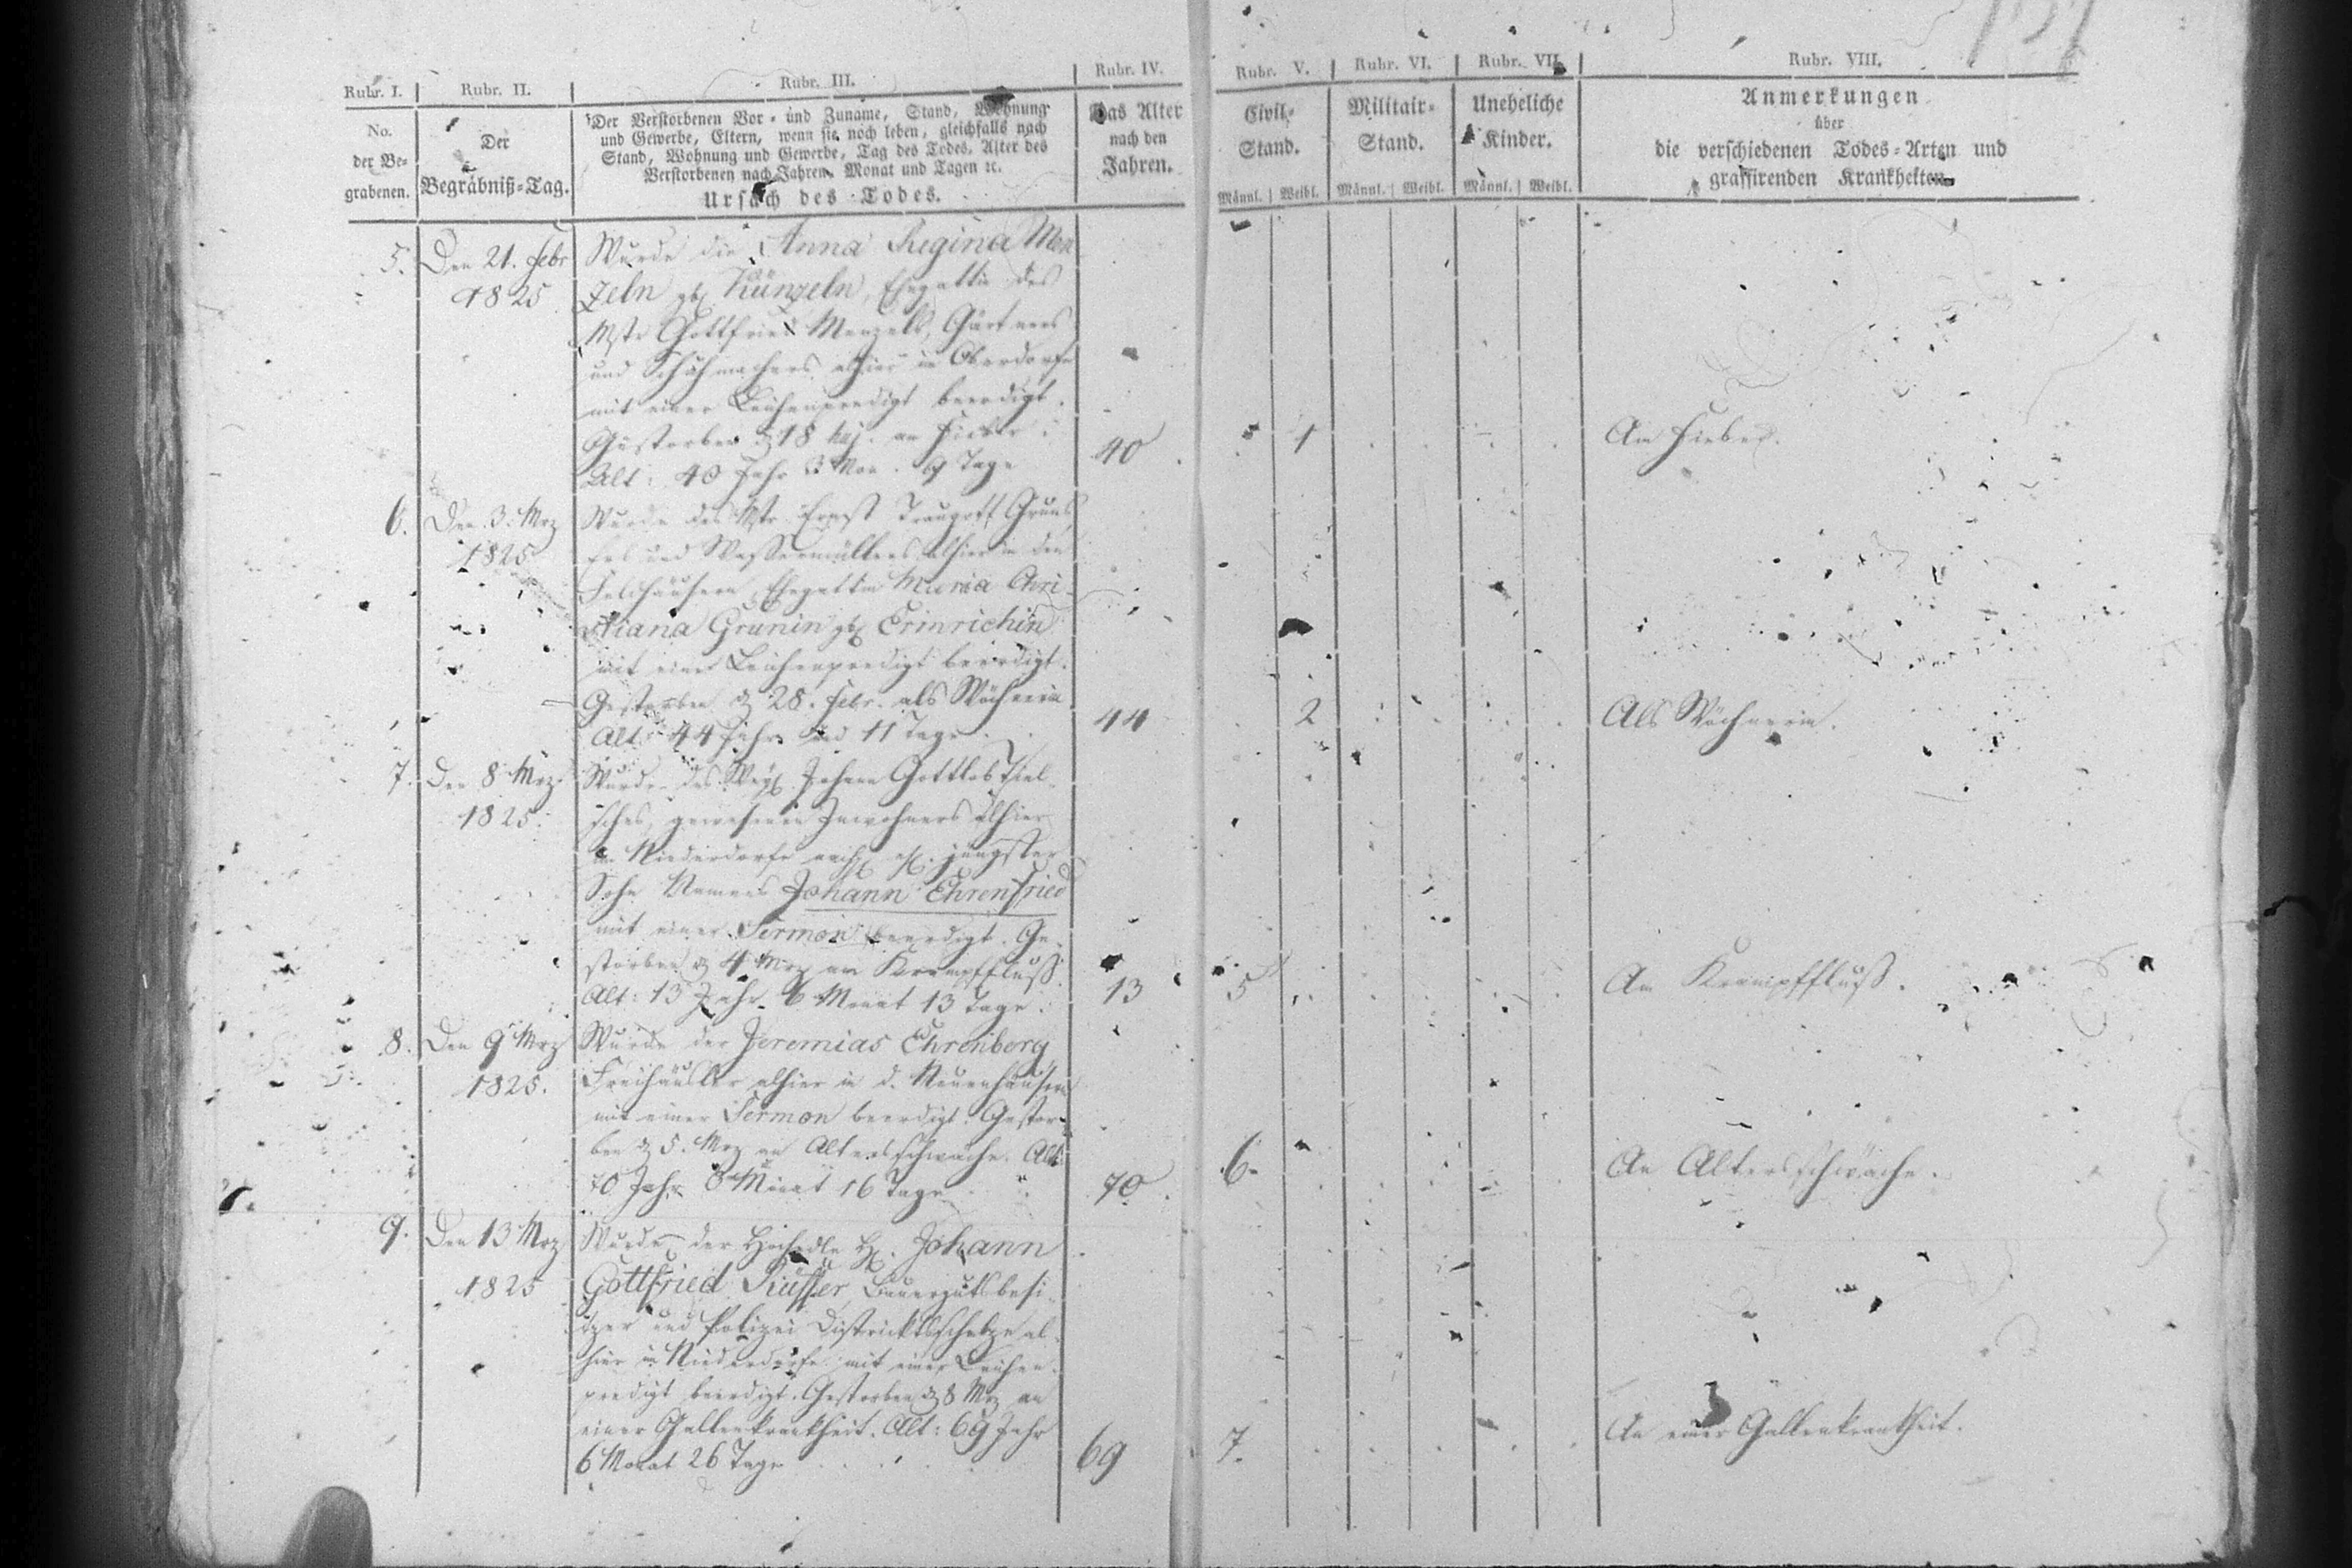 Rubr. I. Rubr. II. Rubr. III. Rubr. IV. Rubr. V. Rubr. VI. Rubr. VII. Rubr. VIII.
No.
der Be-
grabenen.
Der
Begräbniß-Tag.
Der Verstorbenen Vor- und Zuname, Stand, Wohnung
und Gewerbe, Eltern, wenn sie noch leben, gleichfalls nach
Stand, Wohnung und Gewerbe, Tag des Todes, Alter des
Verstorbenen nach Jahren, Monat und Tagen ꝛc.
Ursach des Todes.
Das Alter
nach den
Jahren.
Civil-
Stand.
Männl. Weibl.
Militair-
Stand.
Männl. Weibl.
Uneheliche
Kinder.
Männl. Weibl.
Anmerkungen
über
die verschiedenen Todes-Arten und
grassirenden Krankheiten.
5. Den 21. Febr
1825
Wurde die Anna Regina Men
zeln geb. Künzeln, Ehegattin des
Mstr Gottfried Menzels, Gärtners
und Schuhmachers alhier in Oberdorfe
mit einer Leichenpredigt beerdigt.
Gestorben d 18 huj. am Fieber.
Alt: 40 Jahr 3 Mon. 9 Tage
40 1 Am Fieber.
6. Den 3. Mrz
1825
Wurde des Mstr Ernst Traugott Gruns,
Erb und Wassermüllers alhier in den
Feldhäusern, Ehegattin Maria Chri-
stiana Grunin geb. Ermrichin
mit einer Leichenpredigt beerdigt.
Gestorben d 28. Febr. als Wöchnerin
Alt 44 Jahr und 11 Tage.
44 2 Als Wöchnerin.
7. Den 8 Mrz
1825.
Wurde des Johann Gottlob Tiel-
sches, gewesenen Inwohners alhier
in Niederdorfe jüngster
Sohn Namens Johann Ehrenfried
mit einer Sermon beerdigt. Ge-
storben d 4 Mrz am Krampffluß.
Alt: 13 Jahr 6 Monat 13 Tage.
13 5 Am Krampffluß.
8. Den 9 Mrz
1825.
Wurde der Jeremias Ehrenberg,
Freihäusler alhier in d. Neuenhäusern
mit einer Sermon beerdigt. Gestor-
ben d 5. Mrz an Altersschwäche. Alt
70 Jahr 8 Monat 16 Tage
70 6. An Altersschwäche.
9. Den 13 Mrz
1825
Wurde der Hochedle H. Johann
Gottfried Küffer Bauergutsbesi-
tzer und Polizei Districktsscholze al-
hier in Niederdorfe mit einer Leichen-
predigt beerdigt. Gestorben d 8 Mrz an
einer Gallenkrankheit. Alt: 69 Jahr
6 Monat 26 Tage
69 7. An einer Gallenkrankheit.